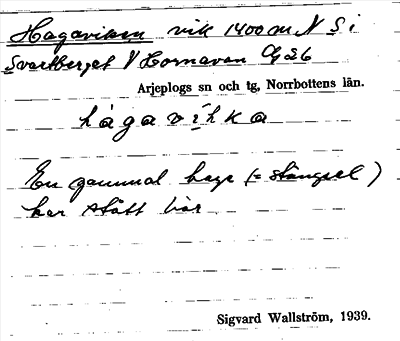 Hagaviken vik 1400 m N S i
Svartberget V Hornavan Cg 26
Arjeplogs sn och tg, Norrbottens län.
hàgavìhka
En gammal hage (= stängsel)
har stått här
Sigvard Wallström, 1939.